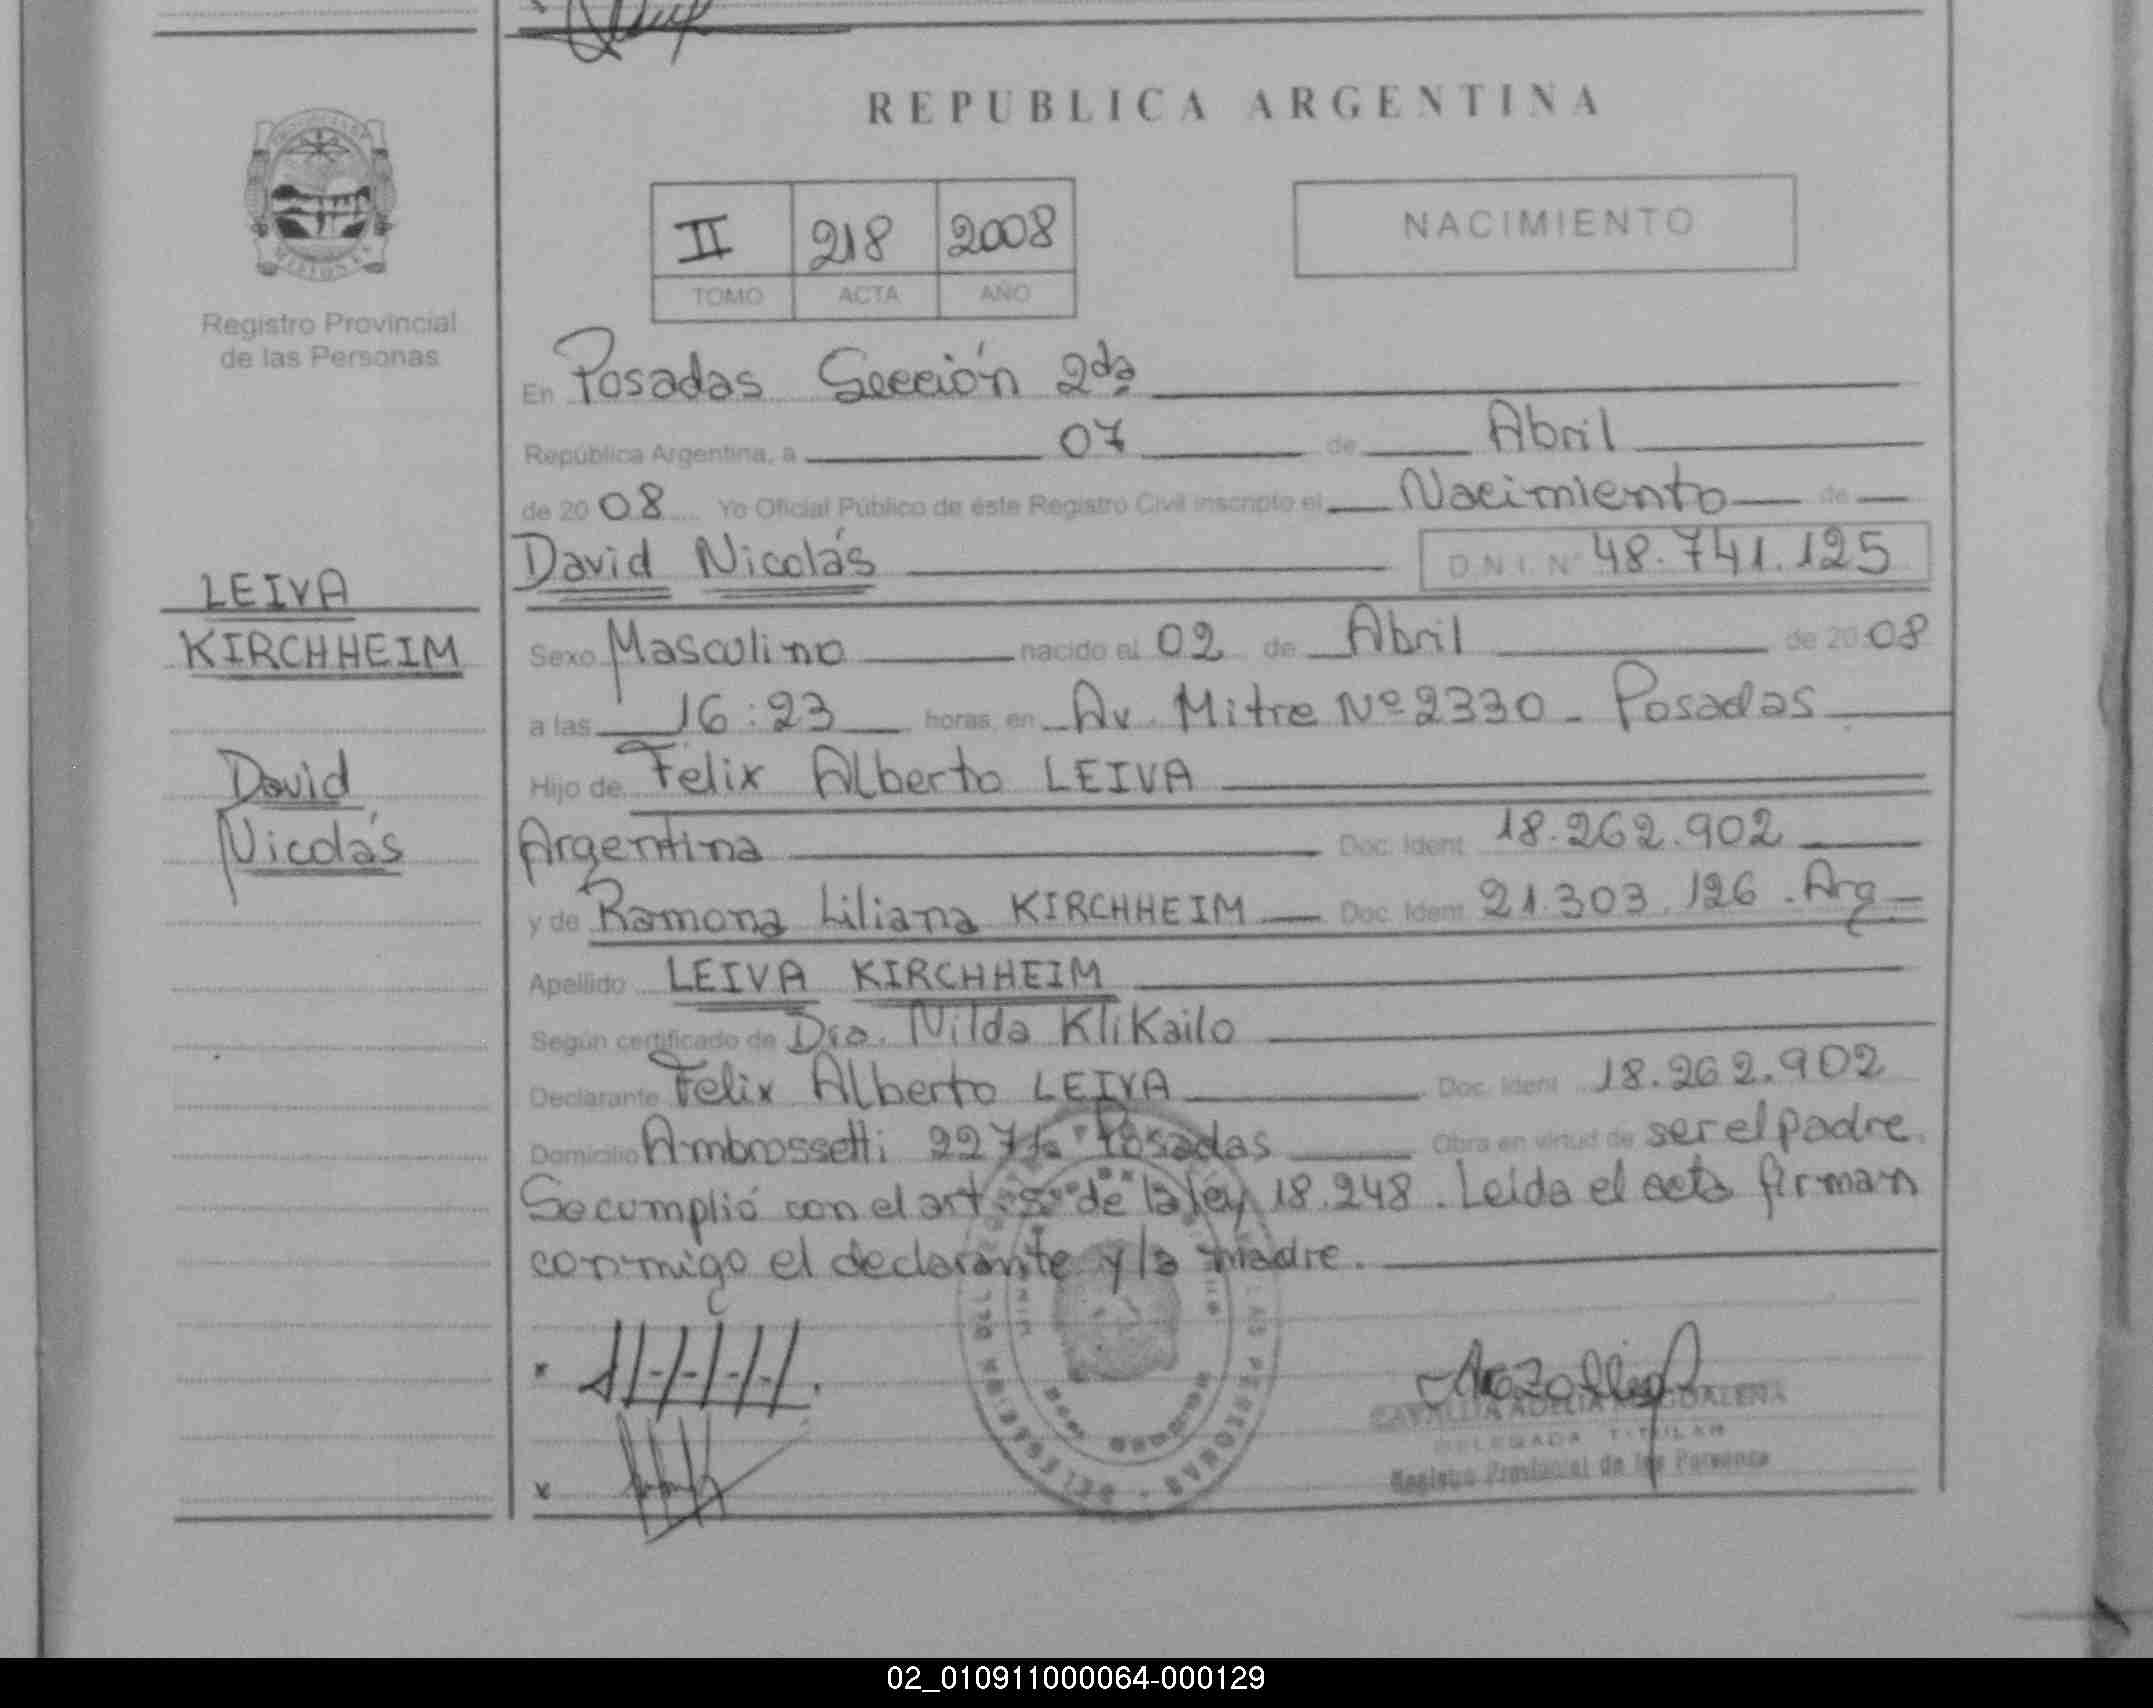 REPUBLICA ARGENTINA
II 218 2008
TOMO ACTA AÑO
NACIMIENTO
MISIONES
Registro Provincial
de las Personas
En Posadas Sección 2da
República Argentina, a 07 de Abril
de 2008 Yo Oficial Público de éste Registro Civil inscripto el Nacimiento de
David Nicolás D.N.I. Nº 48.741.125
LEIVA
KIRCHHEIM
David
Nicolás
Sexo Masculino nacido el 02 de Abril de 2008
a las 16:23 horas, en Av. Mitre Nº 2330 - Posadas
Hijo de Felix Alberto LEIVA
Argentina Doc. Ident. 18.262.902
y de Ramona Liliana KIRCHHEIM Doc. Ident. 21.303.126 . Arg
Apellido LEIVA KIRCHHEIM
Según certificado de Dra. Nilda KliKailo
Declarante Felix Alberto LEIVA Doc. Ident. 18.262.902
Domicilio Ambrossetti Posadas Obra en virtud de ser el padre.
Se cumplió con el art de la ley 18.248. Leída el acta firman
conmigo el declarante y la madre.
ADELIA MAGDALENA
DELEGADA TITULAR
Registro Provincial de las Personas
02_010911000064-000129